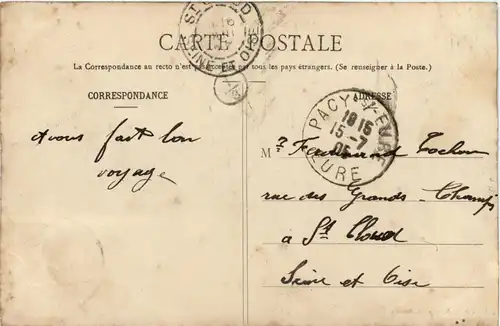 CARTE POSTALE
La Correspondance au recto n'est pas acceptée par tous les pays étrangers. (Se renseigner à la Poste.)
CORRESPONDANCE
ADRESSE
ST CLOUD
SEINE ET OISE
PACY-S-EURE
18 15
15-7
05
EURE
avons fait bon
voyage
M
Fernand
rue des Grands Champs
à St Cloud
Seine et Oise